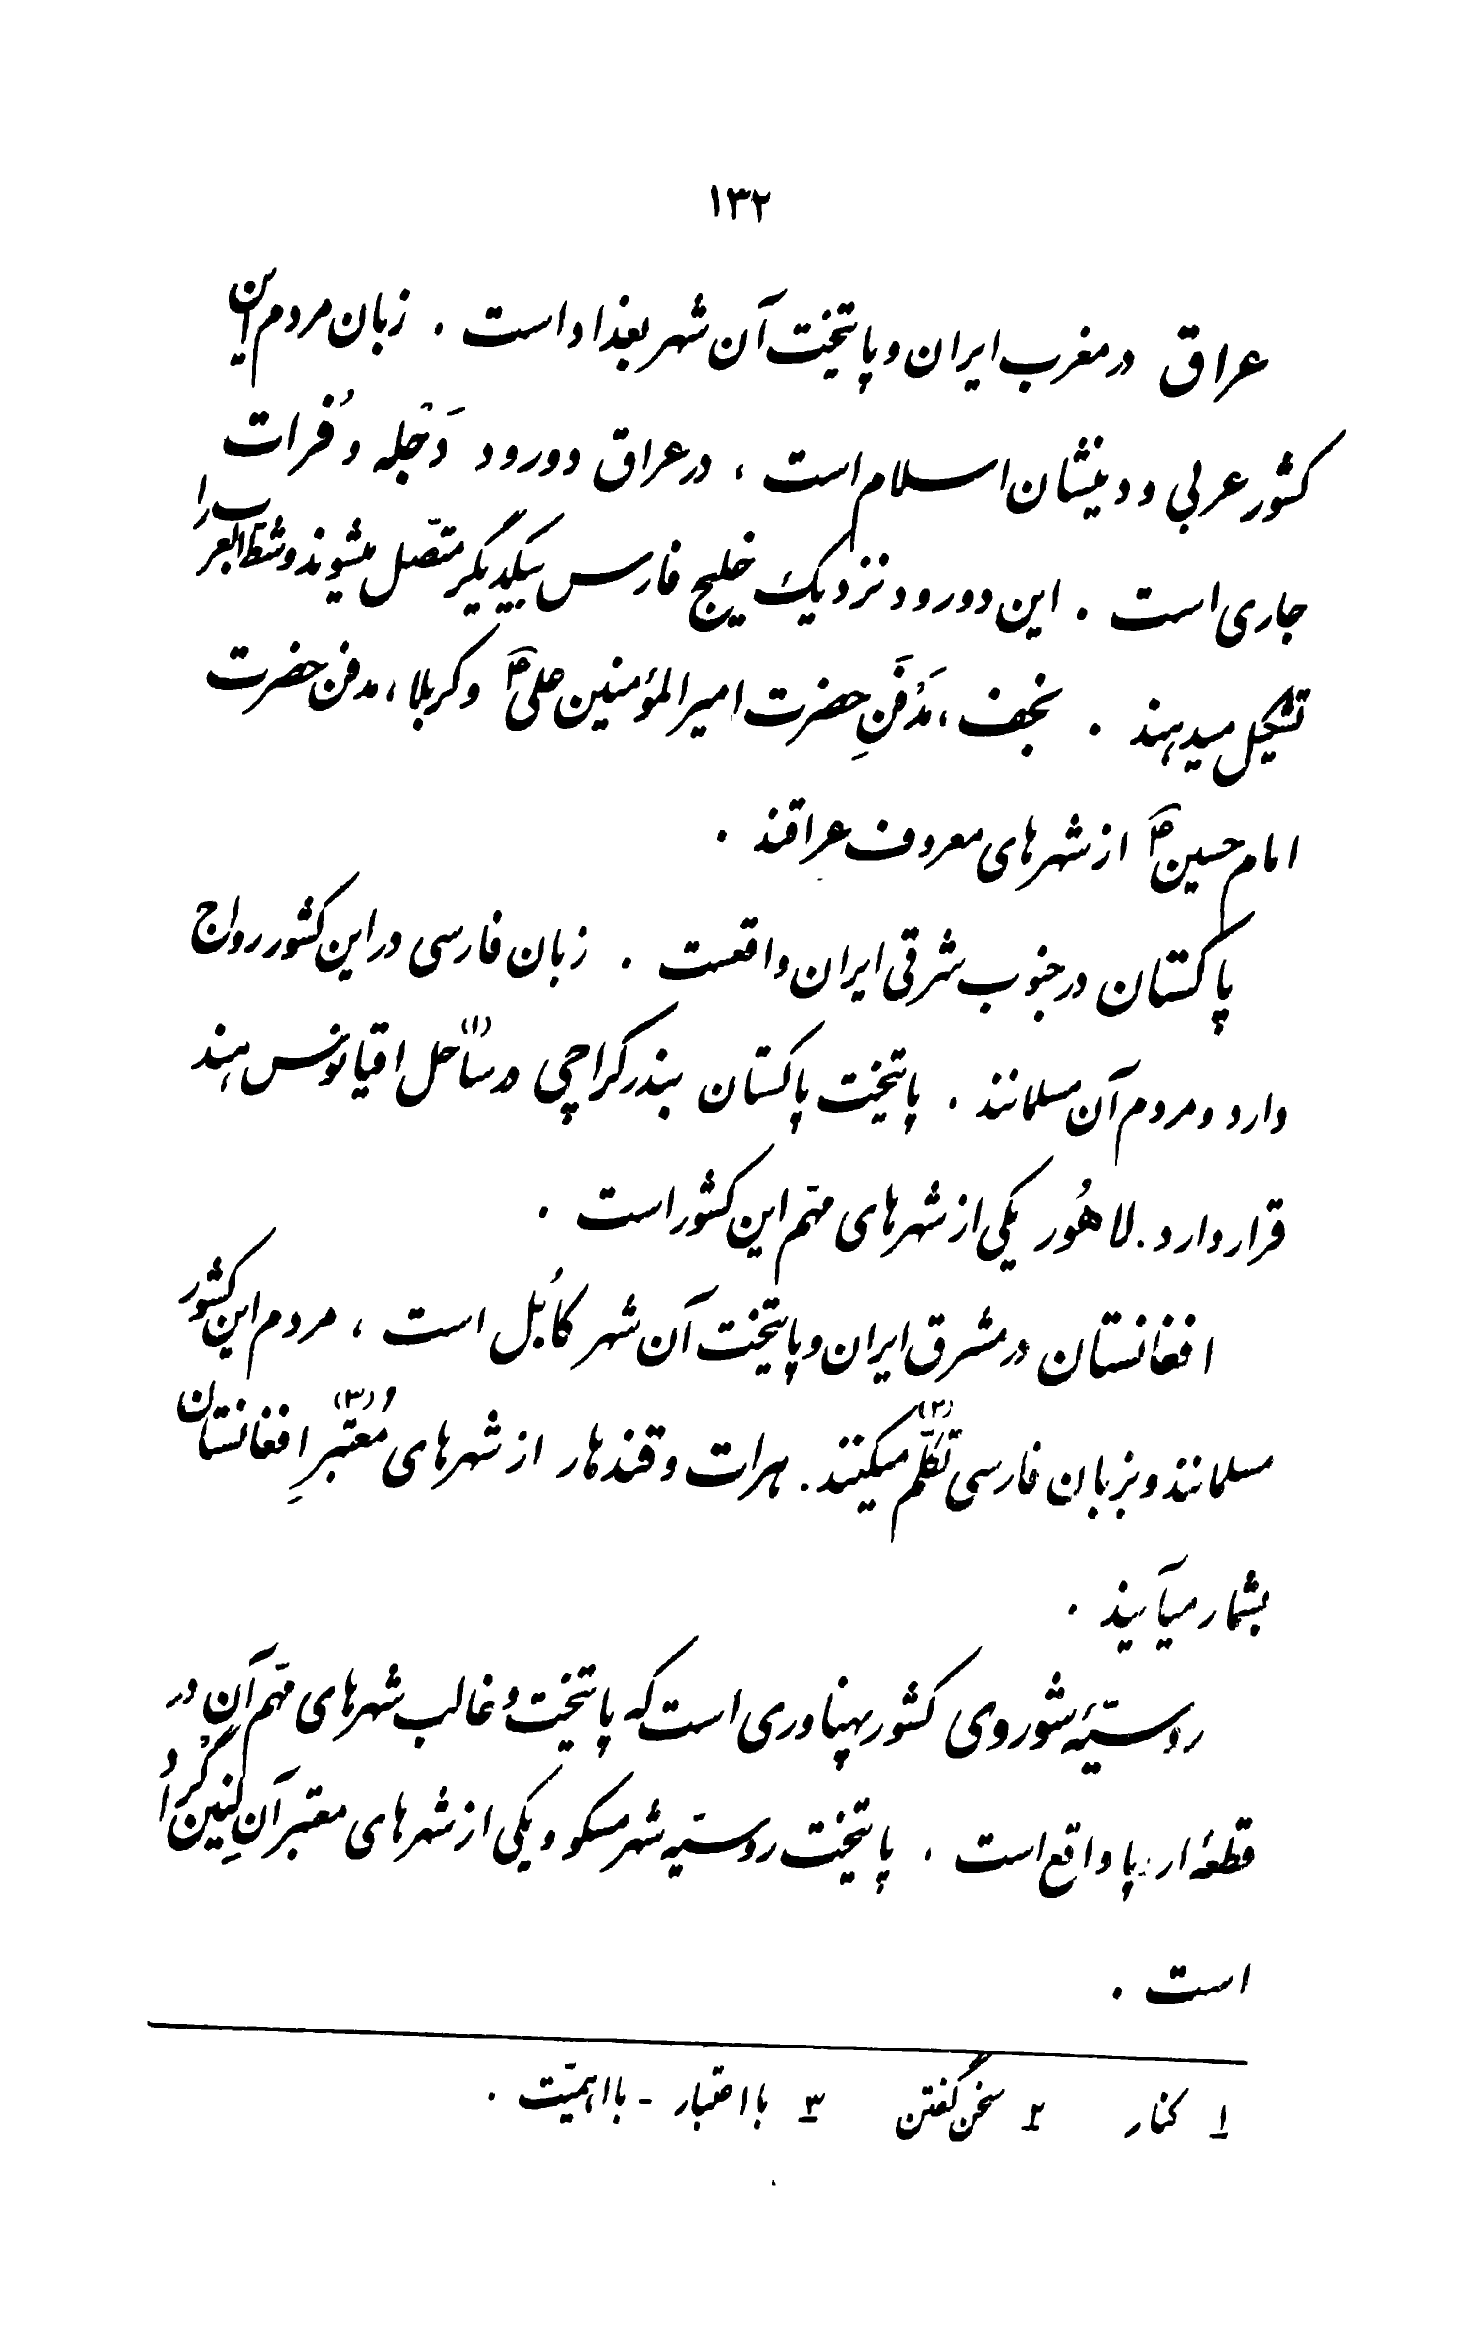 ۱۳۲
عراق در مغرب ایران و پاتیخت آن شهر بغداد است . زبان مردم این
کشور عربی و دینشان اسلام است ، در عراق دو رود دَجْله و فُرات
جاری است . این دو رود نزدیک خلیج فارس بیکدیگر متّصل میشوند و شطّ العرب را
تشکیل میدهند . نجف ، مَدْفَنِ حضرت امیرالمؤمنین علی ؑ و کربلا ، مدفن حضرت
امام حسین ؑ از شهرهای معروف عراقند .
پاکستان در جنوب شرقی ایران واقعست . زبان فارسی در این کشور رواج
دارد و مردم آن مسلمانند . پاتیخت پاکستان بندر کراچی در ساحل (۱) اقیانوس هند
قرار دارد . لاهُور یکی از شهرهای مهّم این کشور است .
افغانستان در مشرق ایران و پاتیخت آن شهر کابُل است ، مردم این کشور
مسلمانند و بزبان فارسی تکلّم (۲) میکنند . هرات و قندهار از شهرهای مُعتبرِ (۳) افغانستان
بشمار میآیند .
روسیّهٔ شوروی کشور پهناوری است که پاتیخت و غالب شهرهای مهّم آن در
قطعهٔ اروپا واقع است . پاتیخت روسیّه شهر مسکو و یکی از شهرهای معتبر آن لِنین گْراد
است .
۱ کنار ۲ سخن گفتن ۳ با اعتبار - با اهمیّت .